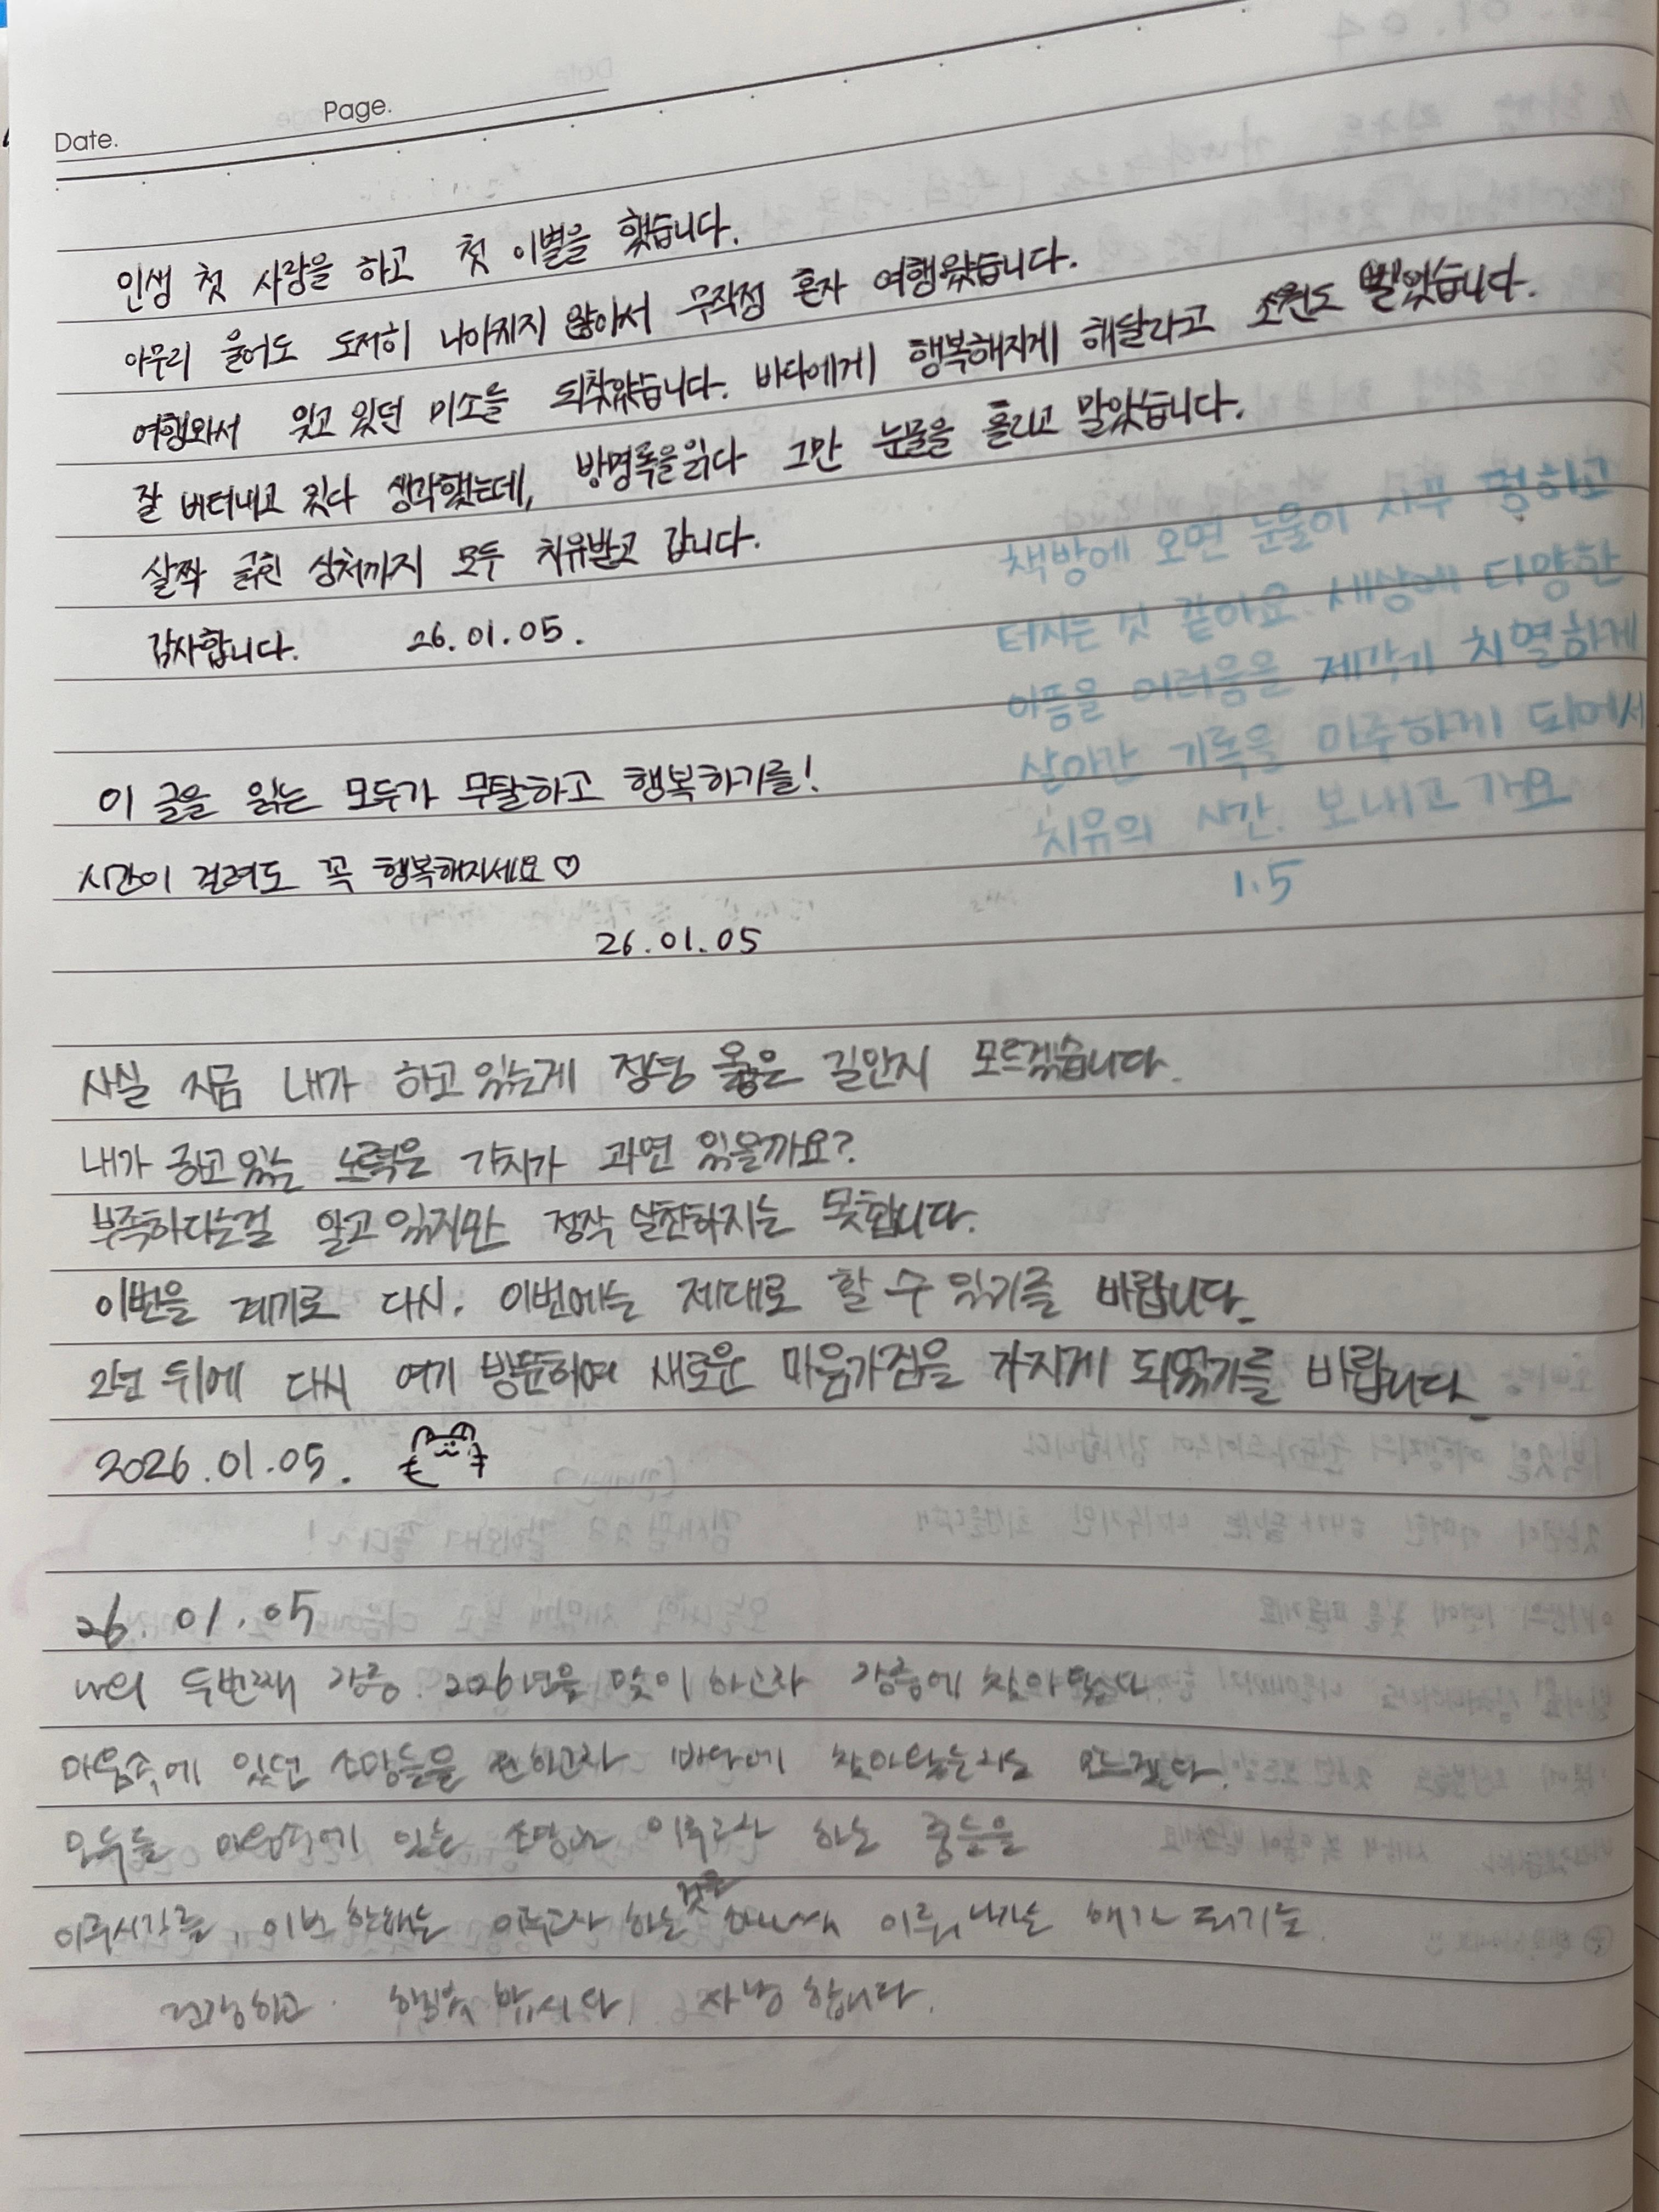 Page.
Date.
인생 첫 사랑을 하고 첫 이별을 했습니다.
아무리 울어도 도저히 나아지지 않아서 무작정 혼자 여행왔습니다.
여행와서 잊고 있던 미소를 되찾았습니다. 바다에게 행복해지게 해달라고 소원도 빌었습니다.
잘 버텨내고 있다 생각했는데, 방명록을 읽다 그만 눈물을 흘리고 말았습니다.
살짝 긁힌 상처까지 모두 치유받고 갑니다.
감사합니다. 26.01.05.
책방에 오면 눈물이 사푸 펑하고
터지는 것 같아요. 세상에 다양한
아픔을 어려움을 제각기 치열하게
살아간 기록을 마주하게 되며서
치유의 시간. 보내고 가요
1.5
이 글을 읽는 모두가 무탈하고 행복하기를!
시간이 걸려도 꼭 행복해지세요♡
26.01.05
사실 지금 내가 하고 있는게 정녕 옳은 길인지 모르겠습니다.
내가 하고 있는 노력은 가치가 과연 있을까요?
부족하다는걸 알고 있지만 정작 실천하지는 못합니다.
이번을 계기로 다시. 이번에는 제대로 할 수 있기를 바랍니다.
2년 뒤에 다시 여기 방문하여 새로운 마음가짐을 가지게 되었기를 바랍니다.
2026.01.05.
26.01.05
나의 두번째 강릉. 2026년을 맞이 하고자 강릉에 찾아 왔다
마음속에 있던 소망들을 하고자 바다에 찾아 모르겠다.
모두들 마음속에 있는 이루고자 하는
이루시기를, 이번 한해는 이루고자 하는 것을 이뤄 나가는 해가 되기를.
건강하고 행복 합시다. 사랑 합니다.